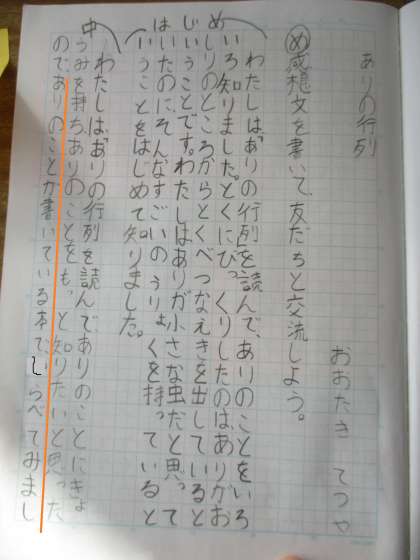 ありの行列
おおたき てつや
め感想文を書いて、友だちと交流しよう。
はじめ
わたしは、ありの行列を読んで、ありのことをいろ
いろ知りました。とくにびっくりしたのは、ありがお
しりのところからとくべつなえきを出しているると
いうことです。わたしはありが小さな虫だと思って
はいたのにそんなすごいのうりょくを持っていると
いうことをはじめて知りました。
中
わたしは、ありの行列を読んで、ありのことにきょ
うみを持ちありのことをもっと知りたいと思った
のでありのことが書いている本で、しらべてみまし